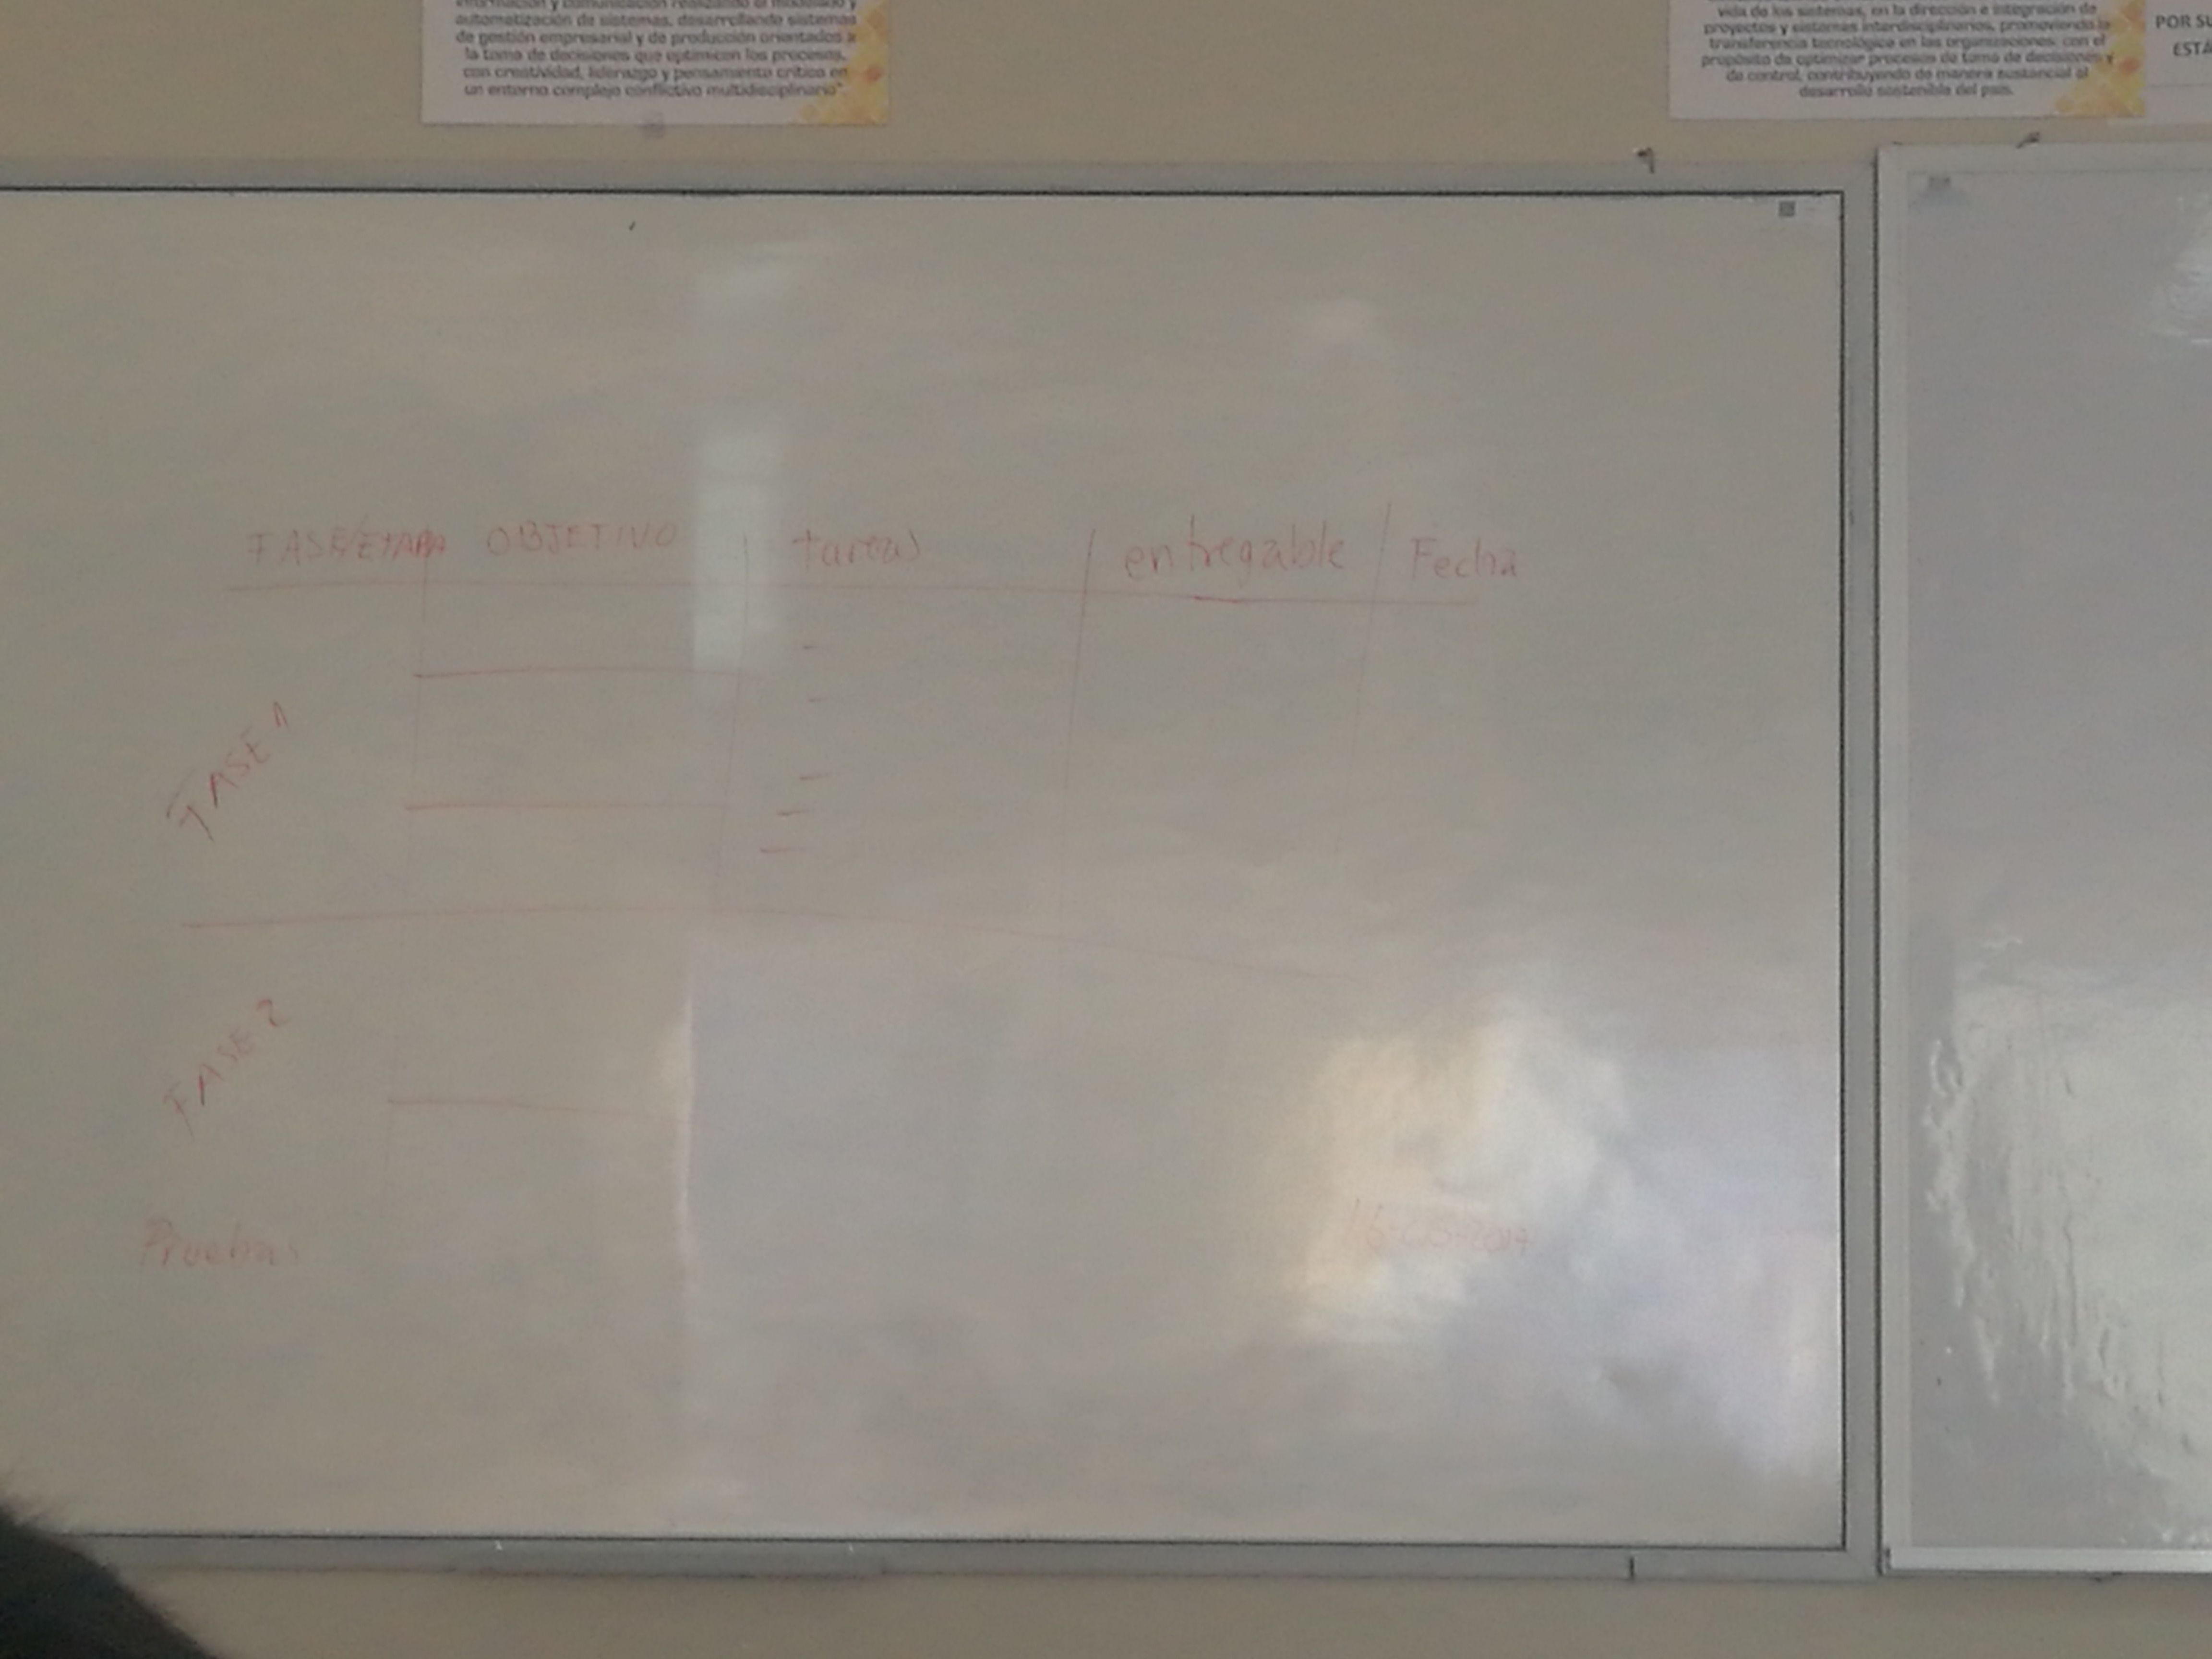 automatización de sistemas, desarrollando sistemas
de gestión empresarial y de producción orientados a
la toma de decisiones que optimicen los procesos,
con creatividad, liderazgo y pensamiento crítico en
un entorno complejo conflictivo multidisciplinario"
vida de los sistemas, en la dirección e integración de
proyectos y sistemas interdisciplinarios, promoviendo la
transferencia tecnológica en las organizaciones, con el
propósito de optimizar procesos de toma de decisiones y
de control, contribuyendo de manera sustancial al
desarrollo sostenible del país.
POR SU
ESTÁ
FASE/ETAPA OBJETIVO tareas entregable Fecha
FASE 1
FASE 2
Pruebas 16-05-2017